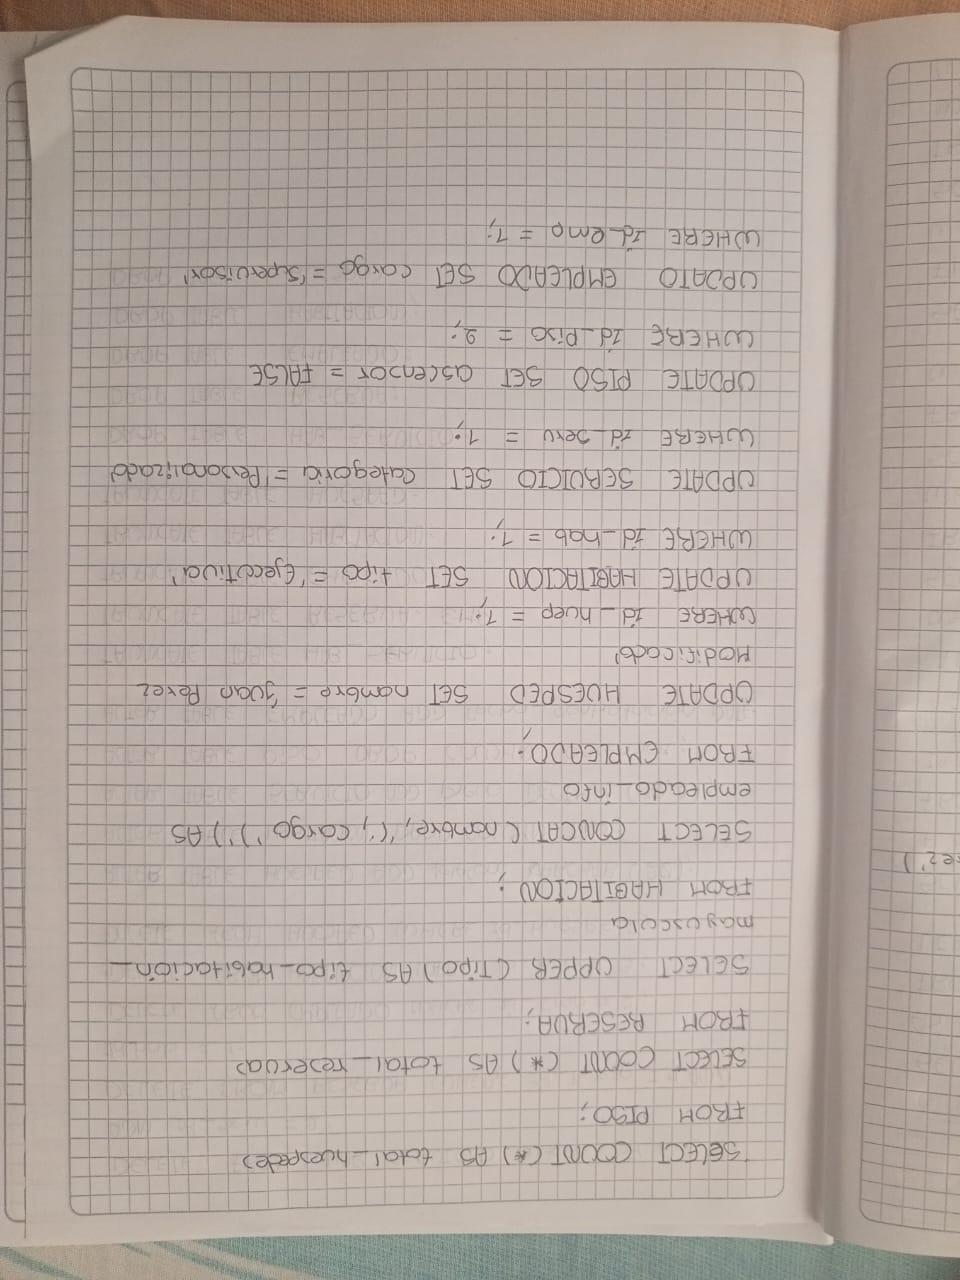 SELECT COUNT (*) AS total_huespedes
FROM PISO;
SELECT COUNT (*) AS total_reservas
FROM RESERVA;
SELECT UPPER (Tipo) AS tipo_habitación_
mayuscula
FROM HABITACION;
SELECT CONCAT (nombre, '(', cargo ')') AS
empleado_info
FROM EMPLEADO;
UPDATE HUESPED SET nombre = 'Juan Perez
Modificado'
WHERE id_huep = 1;
UPDATE HABITACION SET tipo = 'Ejecutiva'
WHERE id_hab = 1;
UPDATE SERVICIO SET categoria = 'Personalizado'
WHERE id_serv = 1;
UPDATE PISO SET ascensor = FALSE
WHERE id_Piso = 2;
UPDATO EMPLEADO SET cargo = 'Supervisor'
WHERE id_emp = 1;